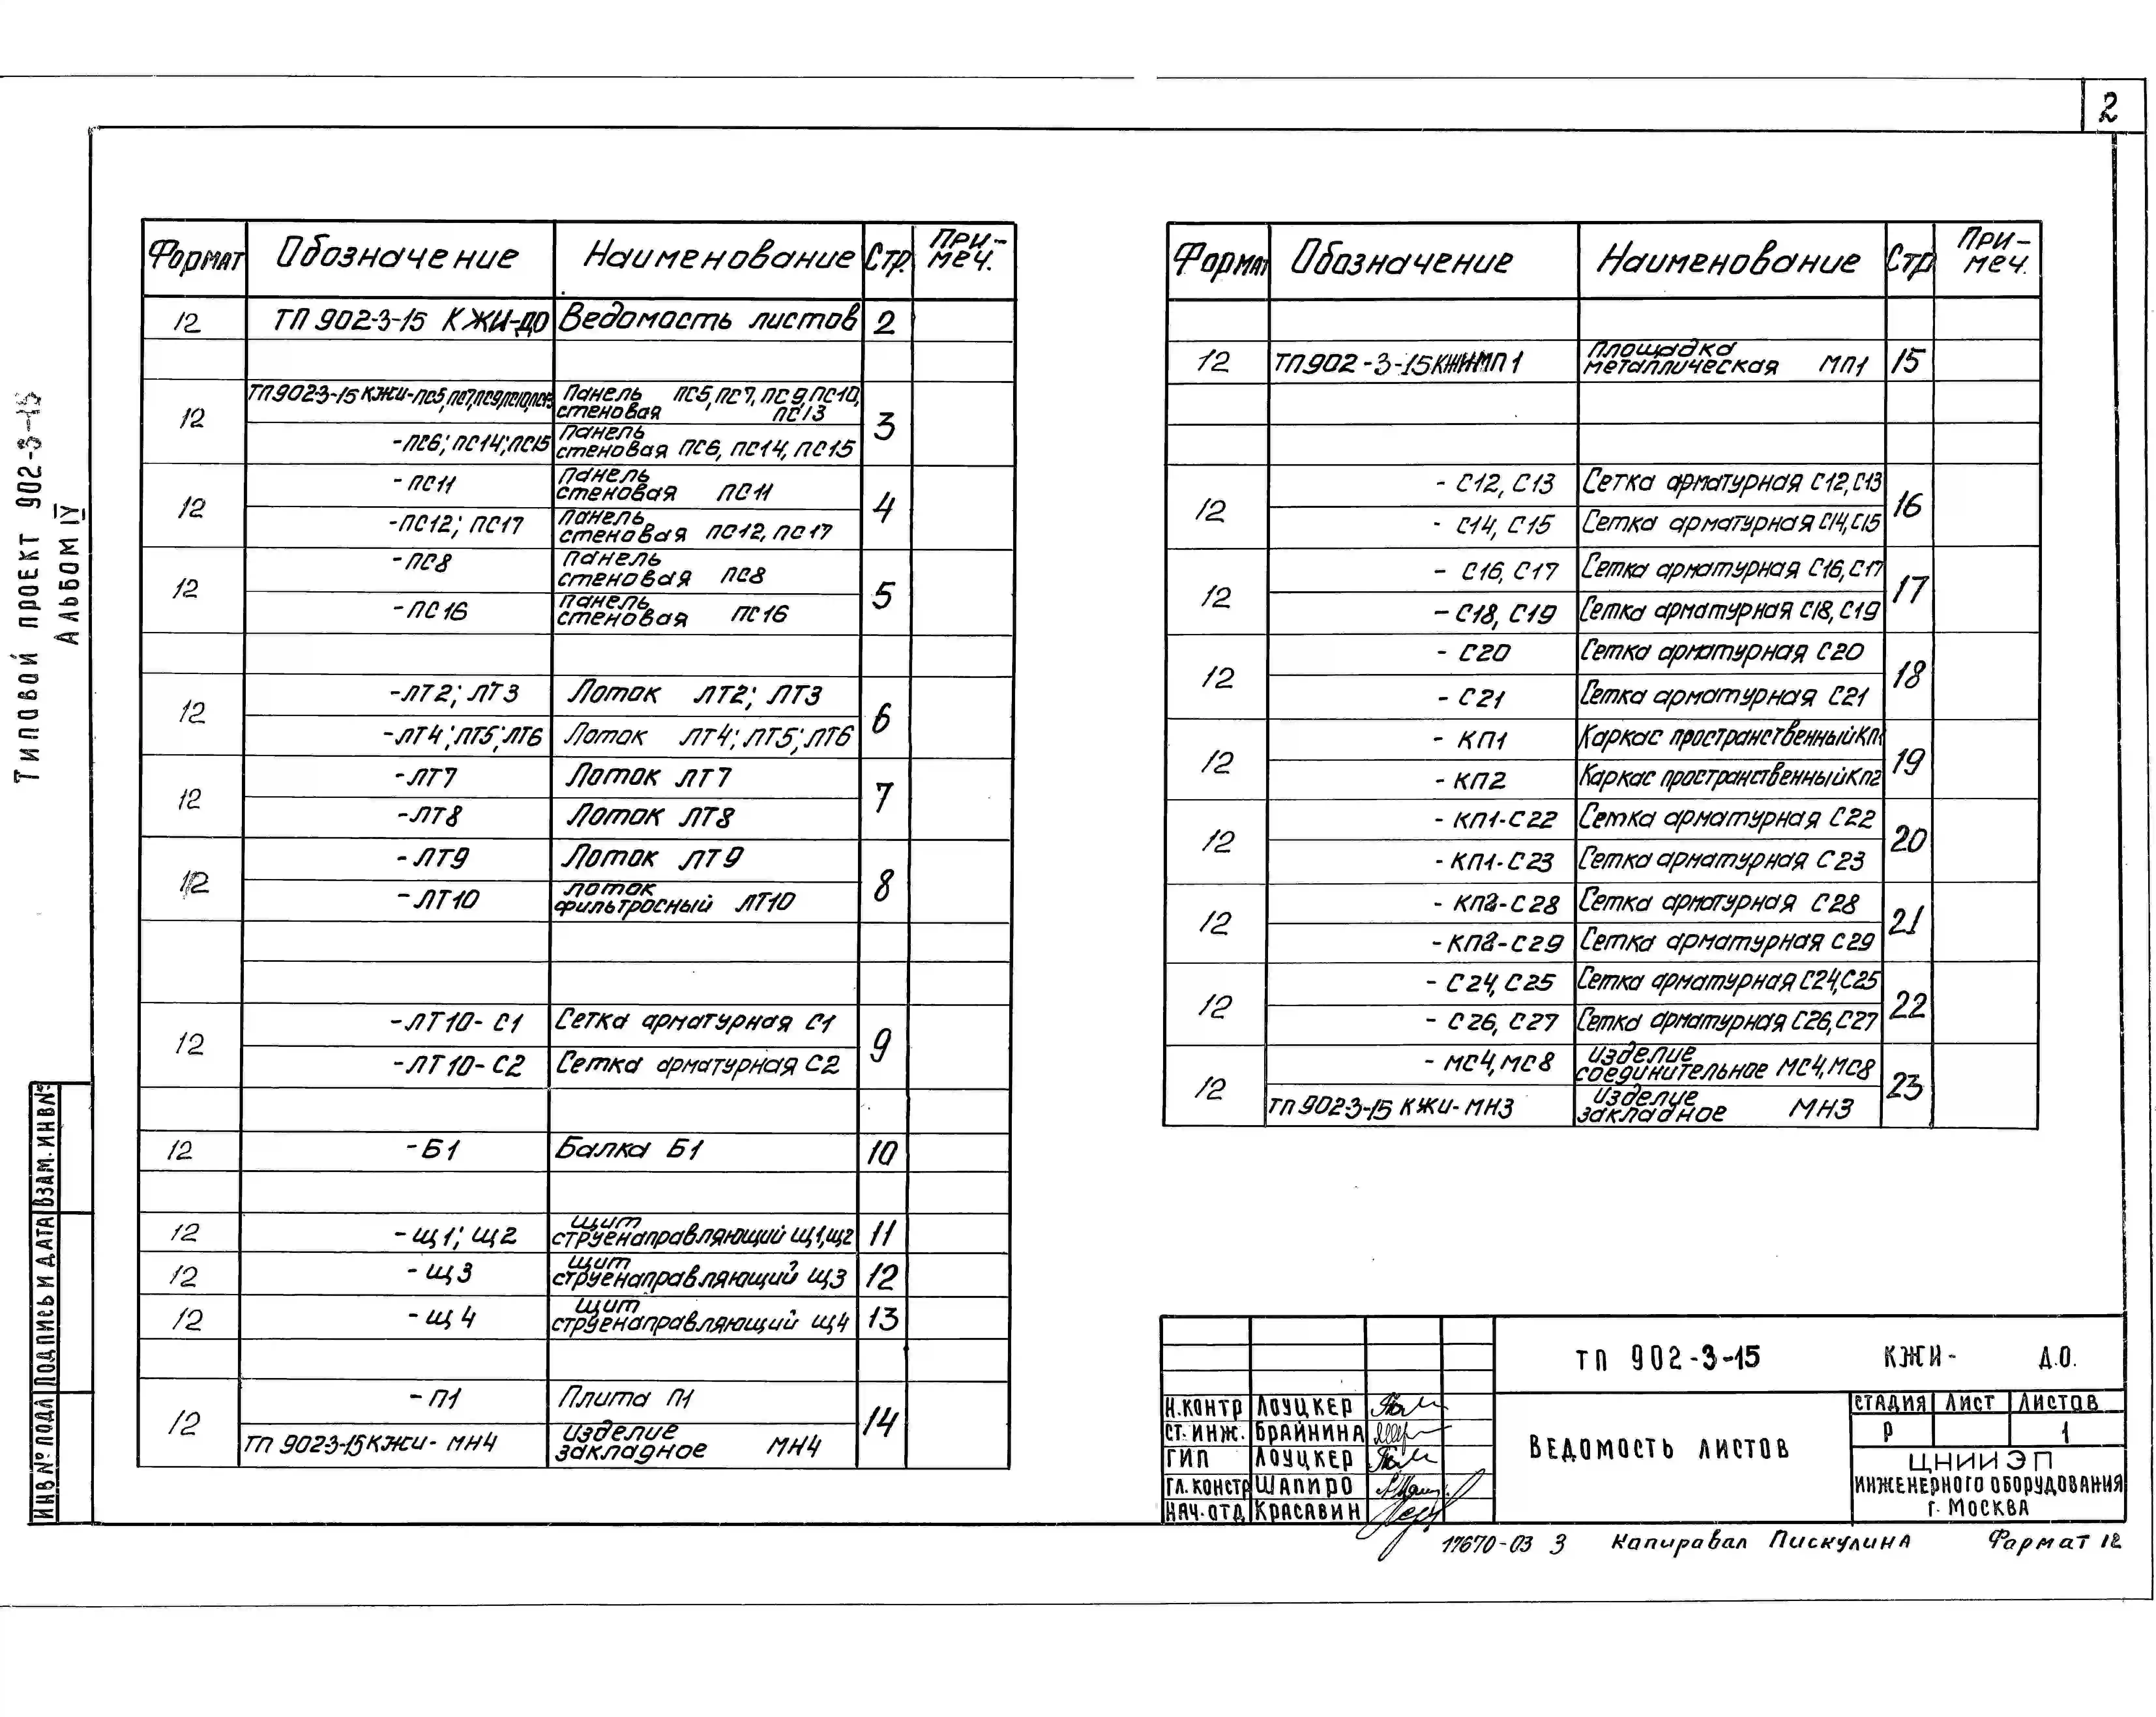 2
Типовой проект 902-3-15
Альбом IV
Формат Обозначение Наименование Стр. При-меч.
12 ТП 902-3-15 КЖИ-ДО Ведомость листов 2
12 ТП902-3-15 КЖИ-ПС5,ПС7,ПС9,ПС10,ПС13 Панель стеновая ПС5, ПС7, ПС9, ПС10, ПС13 3
-ПС6; ПС14; ПС15 Панель стеновая ПС6, ПС14, ПС15
12 -ПС11 Панель стеновая ПС11 4
-ПС12; ПС17 Панель стеновая ПС12, ПС17
12 -ПС8 Панель стеновая ПС8 5
-ПС16 Панель стеновая ПС16
12 -ЛТ2; ЛТ3 Лоток ЛТ2; ЛТ3 6
-ЛТ4; ЛТ5; ЛТ6 Лоток ЛТ4; ЛТ5; ЛТ6
12 -ЛТ7 Лоток ЛТ7 7
-ЛТ8 Лоток ЛТ8
12 -ЛТ9 Лоток ЛТ9 8
-ЛТ10 Лоток фильтросный ЛТ10
12 -ЛТ10-С1 Сетка арматурная С1 9
-ЛТ10-С2 Сетка арматурная С2
12 -Б1 Балка Б1 10
12 -Щ1; Щ2 Щит струенаправляющий Щ1,Щ2 11
12 -Щ3 Щит струенаправляющий Щ3 12
12 -Щ4 Щит струенаправляющий Щ4 13
12 -П1 Плита П1 14
ТП 902-3-15 КЖИ-МН4 Изделие закладное МН4
Формат Обозначение Наименование Стр При-меч.
12 ТП902-3-15КЖИ-МП1 Площадка металлическая МП1 15
12 - С12, С13 Сетка арматурная С12,С13 16
- С14, С15 Сетка арматурная С14,С15
12 - С16, С17 Сетка арматурная С16,С17 17
- С18, С19 Сетка арматурная С18, С19
12 - С20 Сетка арматурная С20 18
- С21 Сетка арматурная С21
12 - КП1 Каркас пространственный КП1 19
- КП2 Каркас пространственный КП2
12 - КП1-С22 Сетка арматурная С22 20
- КП1-С23 Сетка арматурная С23
12 - КП2-С28 Сетка арматурная С28 21
- КП2-С29 Сетка арматурная С29
12 - С24, С25 Сетка арматурная С24,С25 22
- С26, С27 Сетка арматурная С26,С27
12 - МС4, МС8 Изделие соединительное МС4,МС8 23
ТП 902-3-15 КЖИ-МН3 Изделие закладное МН3
ТП 902-3-15 КЖИ- Д.О.
Н.контр Лоуцкер
Ст. инж. Брайнина
ГИП Лоуцкер
Гл. констр Шапиро
Нач. отд Красавин
Ведомость листов
Стадия Лист Листов
Р 1
ЦНИИЭП
инженерного оборудования
г. Москва
17670-03 3 Копировал Пискулина Формат 12
Инв № подл Подпись и дата Взам. инв №